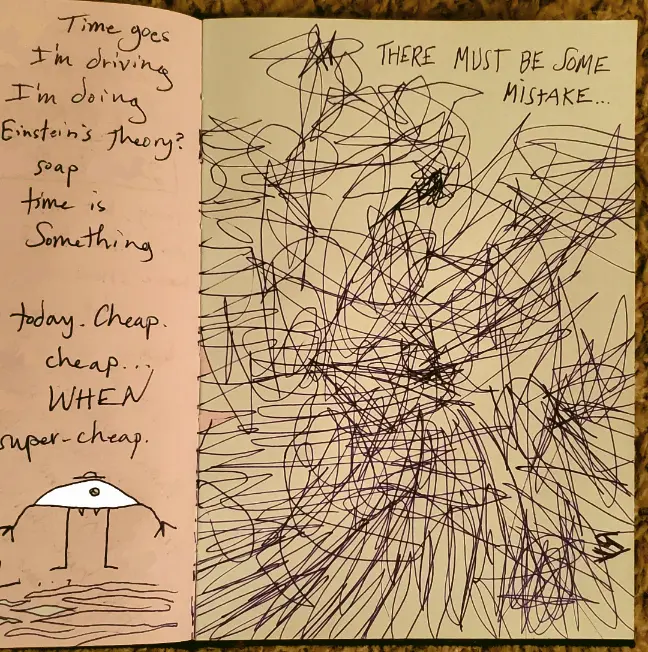 Time goes
I'm driving
I'm doing
Einstein's theory?
soap
time is
Something
today. Cheap.
cheap...
WHEN
super-cheap.
THERE MUST BE SOME
MISTAKE...